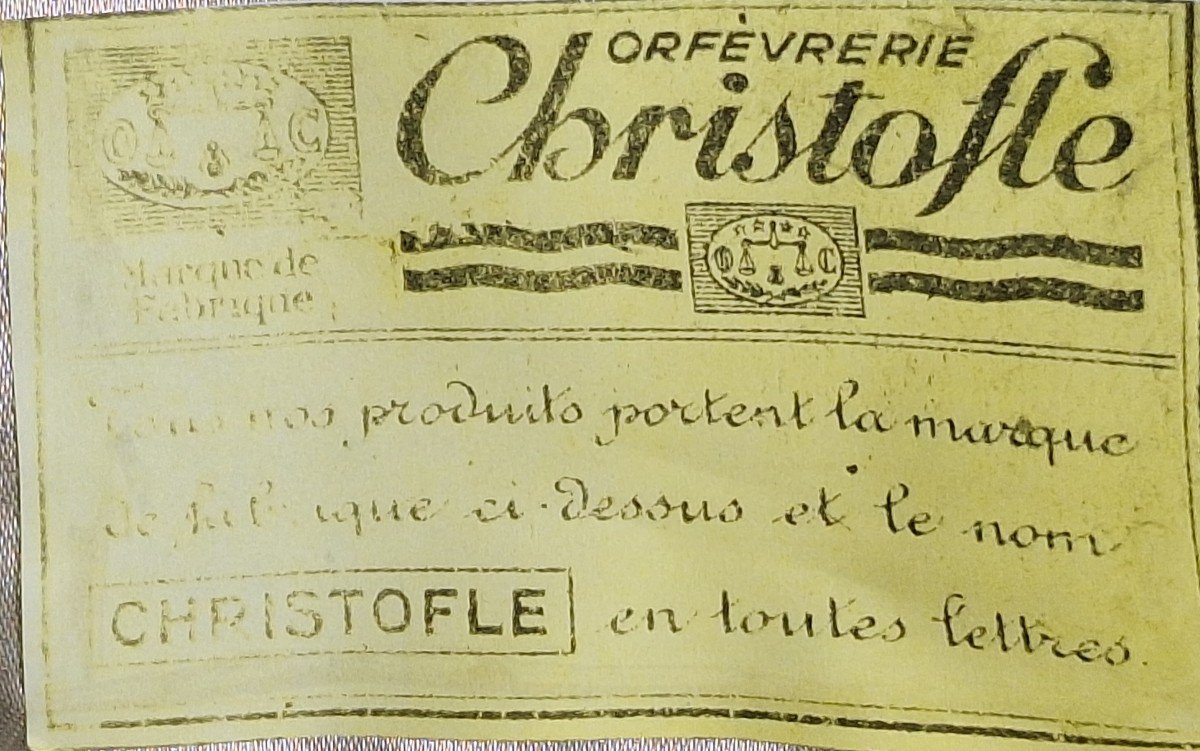 ORFÈVRERIE
Christofle
O C
Marque de
Fabrique
O C
Tous nos produits portent la marque
de fabrique ci-dessus et le nom
CHRISTOFLE en toutes lettres.